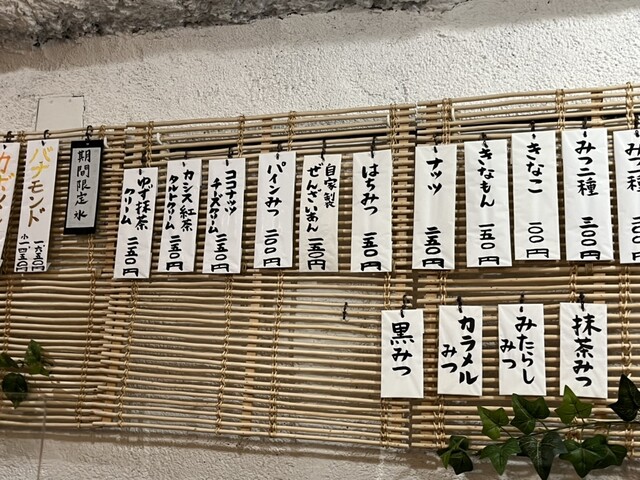 み
三〇円
みつ二種
三〇〇円
きなこ
一〇〇円
きなもん
一五〇円
ナッツ
二五〇円
はちみつ
一五〇円
自家製
ぜんざいあん
一五〇円
パインみつ
二〇〇円
ココナッツ
チーズクリーム
二五〇円
カシス紅茶
タルトクリーム
二五〇円
ゆず抹茶
クリーム
二五〇円
期間限定氷
バナモンド
一六五〇円
小一四五〇円
抹茶みつ
みたらし
みつ
カラメル
みつ
黒みつ